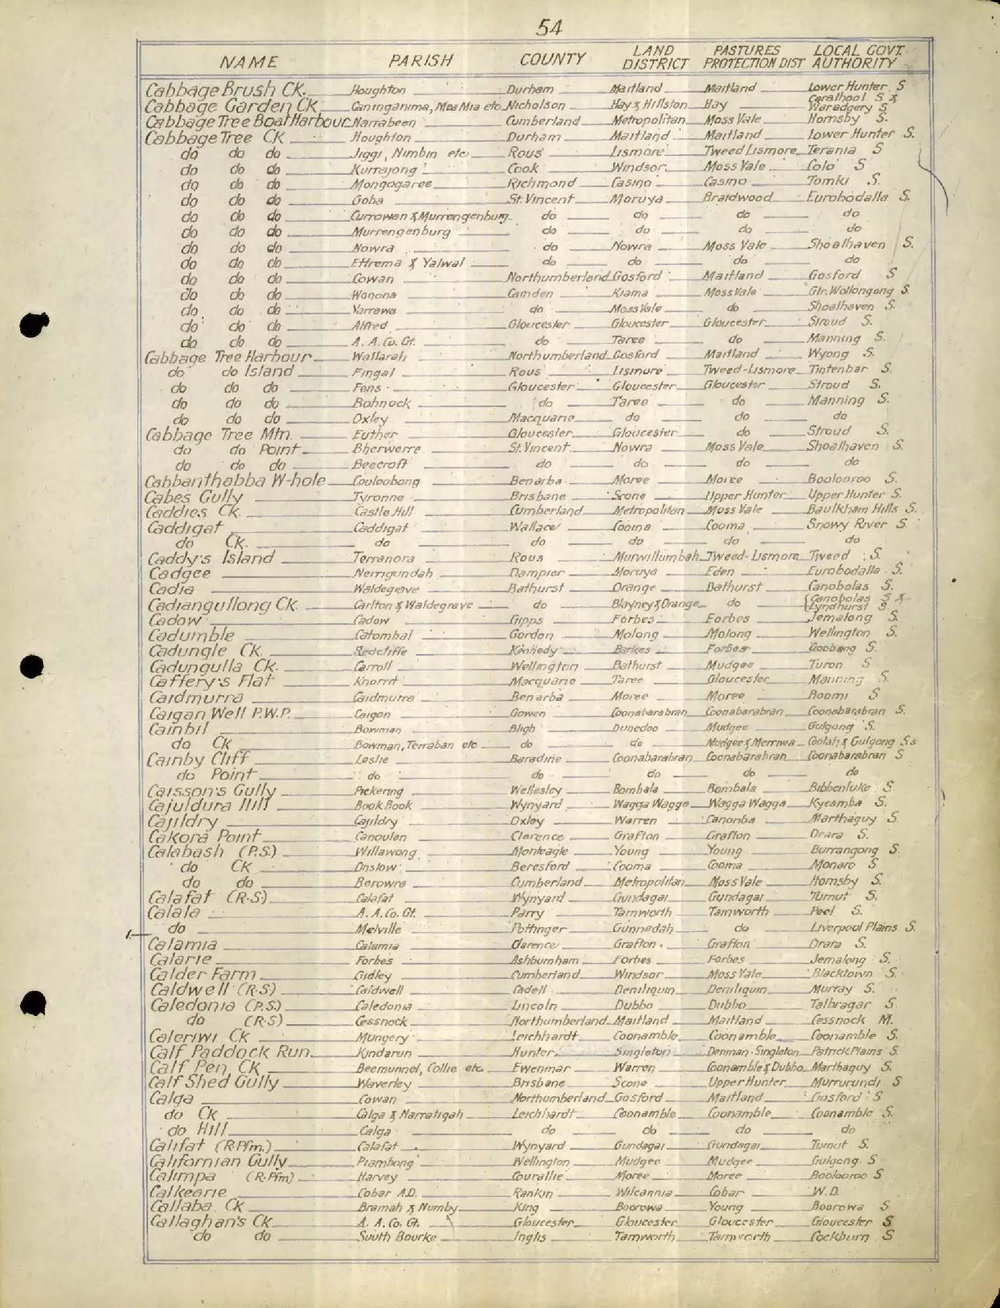 54
NAME PARISH COUNTY LAND DISTRICT PASTURES PROTECTION DIST LOCAL GOVT. AUTHORITY
Cabbage Brush Ck. Houghton Durham Maitland Maitland Lower Hunter S
Cabbage Garden Ck Caninganima, Mea Mia etc. Nicholson Hay & Hillston Hay Carathool S & Waradgery S
Cabbage Tree Boat Harbour Narrabeen Cumberland Metropolitan Moss Vale Hornsby S.
Cabbage Tree Ck Houghton Durham Maitland Maitland Lower Hunter S.
do do do Jiggi, Nimbin etc Rous Lismore Tweed Lismore Terania S
do do do Kurrajong Cook Windsor Moss Vale Colo S
do do do Mongogaree Richmond Casino Casino Tomki S.
do do do Goba St. Vincent Moruya Braidwood Eurobodalla S
do do do Currowan & Murrengenburg do do do do
do do do Murrengenburg do do do do
do do do Nowra do Nowra Moss Vale Shoalhaven S.
do do do Ettrema & Yalwal do do do do
do do do Cowan Northumberland Gosford Maitland Gosford S
do do do Wonona Camden Kiama Moss Vale Gtr. Wollongong S
do do do Yarrawa do Moss Vale do Shoalhaven S
do do do Alfred Gloucester Gloucester Gloucester Stroud S.
do do do A. A. Co. Gt. do Taree do Manning S
Cabbage Tree Harbour Wallarah Northumberland Gosford Maitland Wyong S.
do do Island Fingal Rous Lismore Tweed-Lismore Tintenbar S.
do do do Fens Gloucester Gloucester Gloucester Stroud S.
do do do Bohnock do Taree do Manning S.
do do do Oxley Macquarie do do do
Cabbage Tree Mtn. Euther Gloucester Gloucester do Stroud S.
do do Point Bherwerre St. Vincent Nowra Moss Vale Shoalhaven S.
do do do Beecroft do do do do
Cabbanthabba W-hole Couloobong Benarba Moree Moree Boolooroo S.
Cabes Gully Tyronne Brisbane Scone Upper Hunter Upper Hunter S.
Caddies Ck. Castle Hill Cumberland Metropolitan Moss Vale Baulkham Hills S.
Caddigat Caddigat Wallace Cooma Cooma Snowy River S
do Ck. do do do do do
Caddy's Island Terranora Rous Murwillumbah Tweed-Lismore Tweed S.
Cadgee Nerrigundah Dampier Moruya Eden Eurobodalla S.
Cadia Waldegrave Bathurst Orange Bathurst Canobolas S.
Cadiangullong Ck. Carlton & Waldegrave do Blayney & Orange do Canobolas S & Lyndhurst S
Cadow Cadow Gipps Forbes Forbes Jemalong S.
Cadumble Catombal Gordon Molong Molong Wellington S.
Cadungle Ck. Redcliffe Kennedy Parkes Forbes Goobang S.
Cadungulla Ck. Carroll Wellington Bathurst Mudgee Turon S
Caffery's Flat Knorrit Macquarie Taree Gloucester Manning S.
Caidmurra Caidmurra Benarba Moree Moree Boomi S
Caigan Well P.W.P. Caigan Gowen Coonabarabran Coonabarabran Coonabarabran S.
Cainbil Bowman Bligh Dunedoo Mudgee Gulgong S.
do Ck Bowman, Terraban etc do do Mudgee & Merriwa Coolah & Gulgong Ss
Cainby Cliff Leslie Baradine Coonabarabran Coonabarabran Coonabarabran S
do Point do do do do do
Caisson's Gully Pickering Wellesley Bombala Bombala Bibbenluke S
Cajuldura Hill Book Book Wynyard Wagga Wagga Wagga Wagga Kyeamba S.
Cajildry Cajildry Oxley Warren Canonba Marthaguy S.
Cakora Point Candulan Clarence Grafton Grafton Orara S.
Calabash (P.S.) Willawong Monteagle Young Young Burrangong S.
do Ck Onslow Beresford Cooma Cooma Monaro S
do do Berowra Cumberland Metropolitan Moss Vale Hornsby S.
Calafat (R.S.) Calafat Wynyard Gundagai Gundagai Tumut S.
Calala A. A. Co. Gt. Parry Tamworth Tamworth Peel S.
do Melville Pottinger Gunnedah do Liverpool Plains S.
Calamia Calamia Clarence Grafton Grafton Orara S.
Calarie Forbes Ashburnham Forbes Forbes Jemalong S.
Calder Farm Gidley Cumberland Windsor Moss Vale Blacktown S.
Caldwell (R.S) Caldwell Cadell Deniliquin Deniliquin Murray S.
Caledonia (P.S.) Caledonia Lincoln Dubbo Dubbo Talbragar S.
do (R.S) Cessnock Northumberland Maitland Maitland Cessnock M.
Caleriwi Ck Mungery Leichhardt Coonamble Coonamble Coonamble S.
Calf Paddock Run Kindarun Hunter Singleton Denman-Singleton Patrick Plains S
Calf Pen Ck Beemunnel, Collie etc. Ewenmar Warren Coonamble & Dubbo Marthaguy S.
Calf Shed Gully Waverley Brisbane Scone Upper Hunter Murrurundi S
Calga Cowan Northumberland Gosford Maitland Gosford S
do Ck Calga & Narratigah Leichhardt Coonamble Coonamble Coonamble S.
do Hill Calga do do do do
Califat (R.Pfm.) Calafat Wynyard Gundagai Gundagai Tumut S.
Californian Gully Piambong Wellington Mudgee Mudgee Gulgong S
Calimpa (R.Pfm) Harvey Courallie Moree Moree Boolooroo S
Calkearie Cobar A.D. Rankin Wilcannia Cobar W.D.
Callaba Ck Bramah & Numby King Boorowa Young Boorowa S
Callaghan's Ck A. A. Co. Gt. Gloucester Gloucester Gloucester Gloucester S
do do South Bourke Inglis Tamworth Tamworth Cockburn S